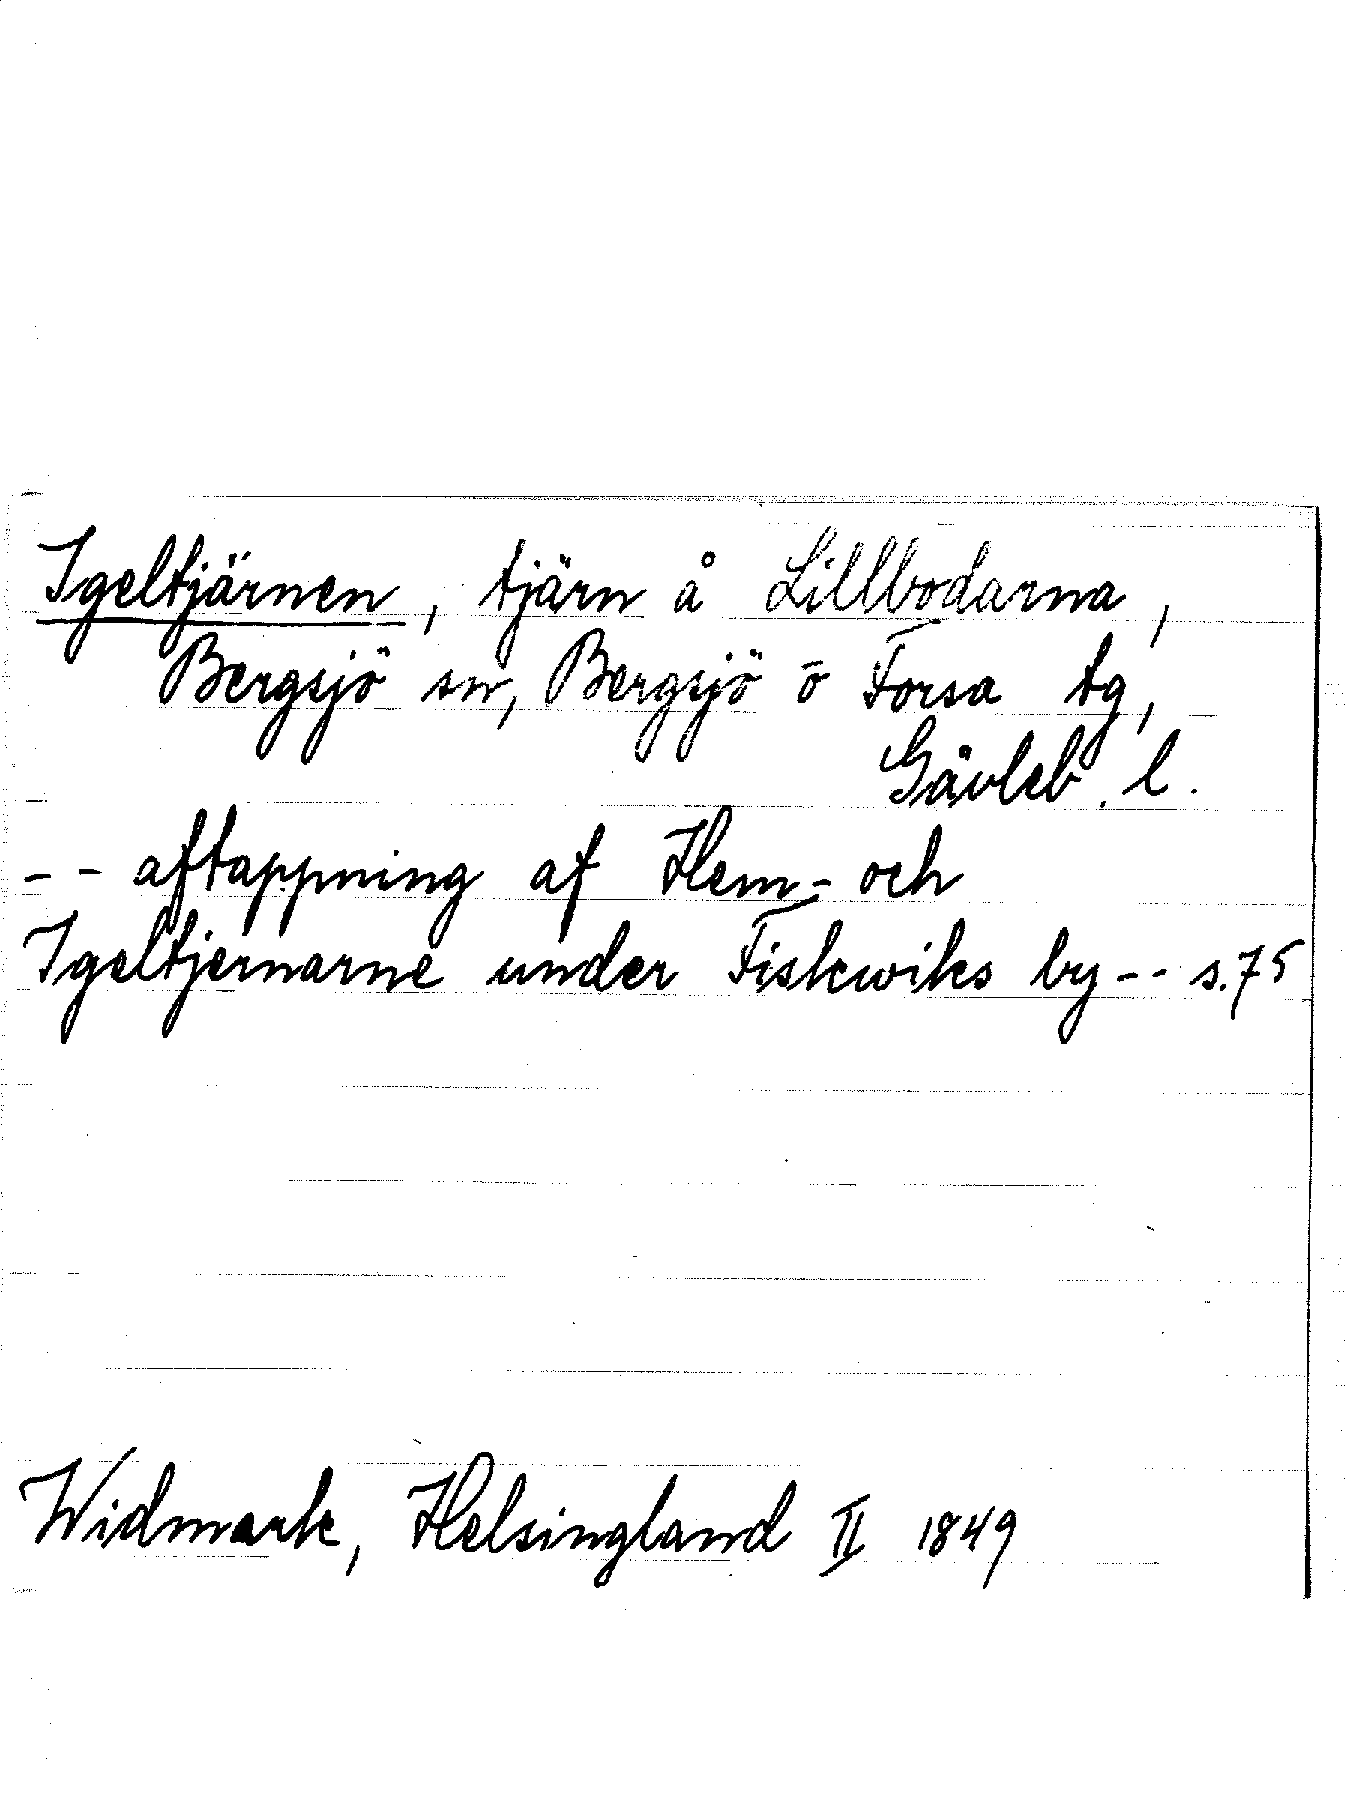 Igeltjärnen, tjärn å Lillbodarna,
Bergsjö sn, Bergsjö o Forsa tg,
Gävleb. l.
-- aftappning af Hem- och
Igeltjernarne under Fiskwiks by -- s. 75
Widmark, Helsingland II 1849